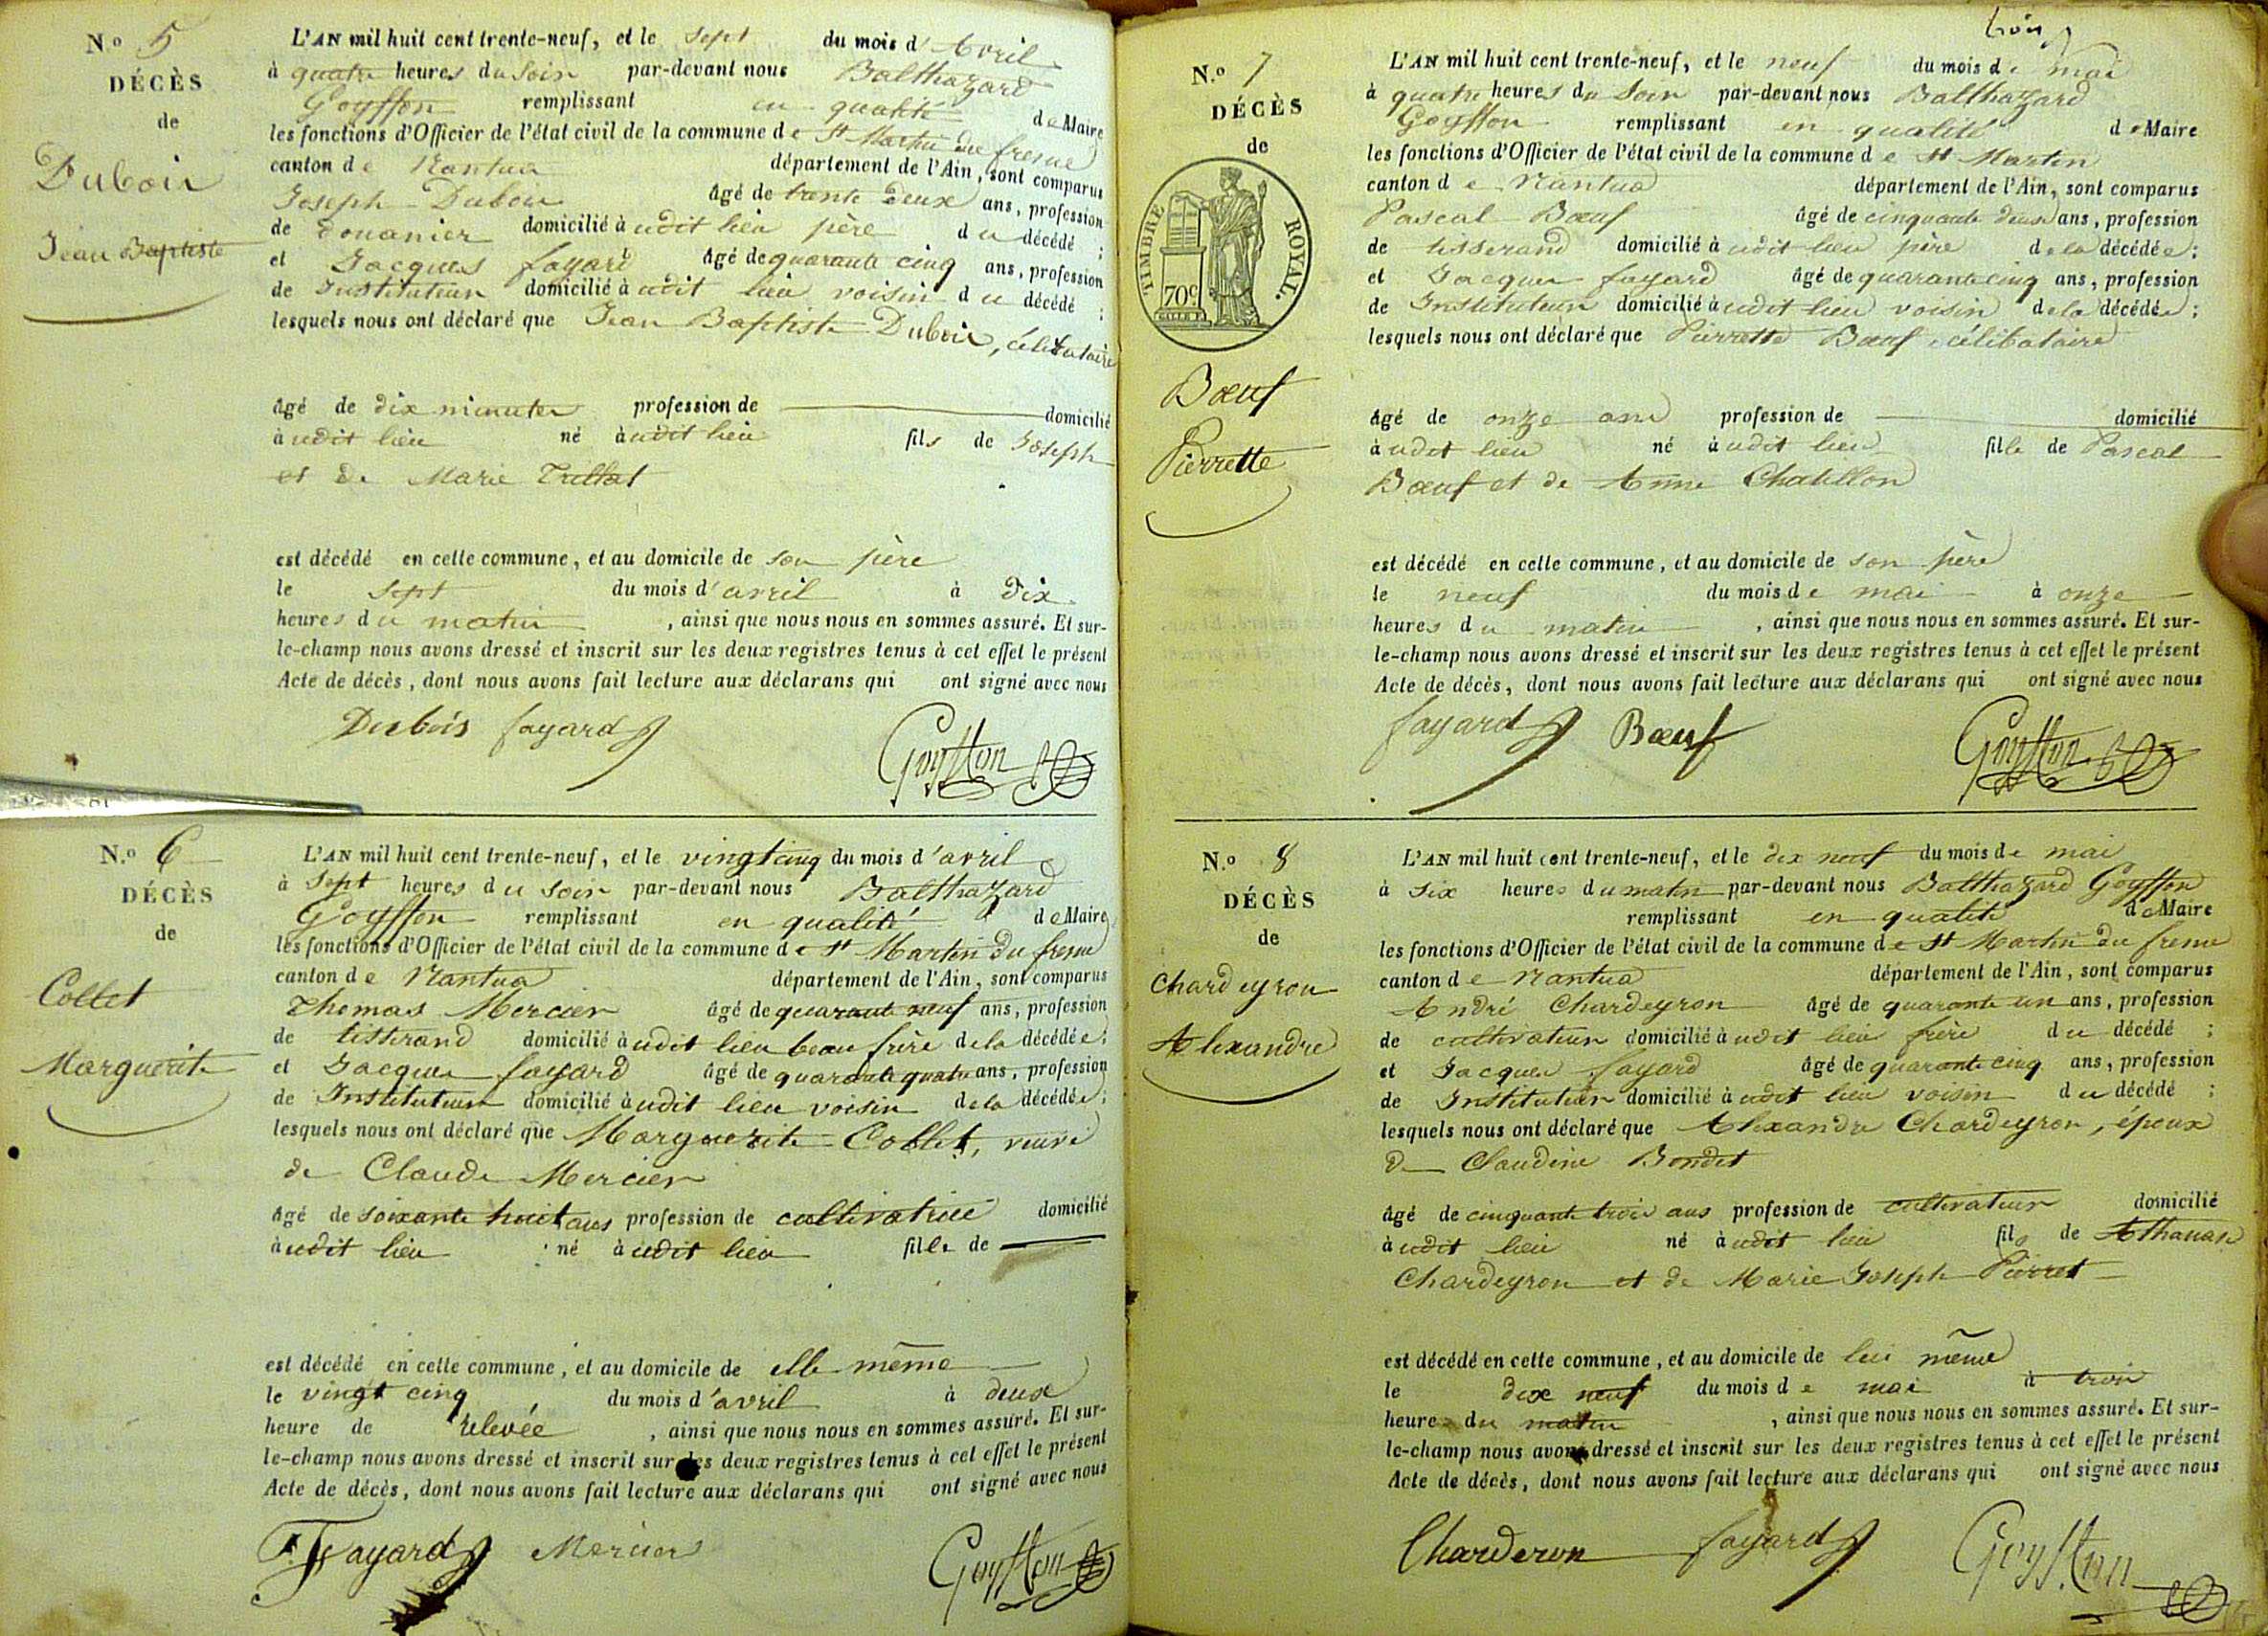 N.o 5
DÉCÈS
de
Dubois
Jean Baptiste
L'AN mil huit cent trente-neuf, et le sept du mois d'Avril
à quatre heures du soir par-devant nous Balthazard
Goyffon remplissant en qualité de Maire
les fonctions d'Officier de l'état civil de la commune de St Martin du fresne
canton de Nantua département de l'Ain, sont comparus
Joseph Dubois âgé de trente deux ans, profession
de douanier domicilié à udit lieu père du décédé ;
et Jacques fayard âgé de quarante cinq ans, profession
de Instituteur domicilié à udit lieu voisin du décédé ;
lesquels nous ont déclaré que Jean Baptiste Dubois, célibataire
âgé de dix minutes profession de domicilié
à udit lieu né à udit lieu fils de Joseph
et de Marie Trillat
est décédé en cette commune, et au domicile de son père
le sept du mois d'avril à dix
heures du matin , ainsi que nous nous en sommes assuré. Et sur-
le-champ nous avons dressé et inscrit sur les deux registres tenus à cet effet le présent
Acte de décès, dont nous avons fait lecture aux déclarans qui ont signé avec nous
Dubois fayard Goyffon
N.o 6
DÉCÈS
de
Collet
Marguerite
L'AN mil huit cent trente-neuf, et le vingt cinq du mois d'avril
à sept heures du soir par-devant nous Balthazard
Goyffon remplissant en qualité de Maire
les fonctions d'Officier de l'état civil de la commune de St Martin du fresne
canton de Nantua département de l'Ain, sont comparus
Thomas Mercier âgé de quarante neuf ans, profession
de tisserand domicilié à udit lieu beau frère de la décédée ;
et Jacques fayard âgé de quarante quatre ans, profession
de Instituteur domicilié à udit lieu voisin de la décédée ;
lesquels nous ont déclaré que Marguerite Collet, veuve
de Claude Mercier
âgé de soixante huit ans profession de cultivatrice domicilié
à udit lieu né à udit lieu fille de
est décédé en cette commune, et au domicile de elle même
le vingt cinq du mois d'avril à deux
heure de relevée , ainsi que nous nous en sommes assuré. Et sur-
le-champ nous avons dressé et inscrit sur les deux registres tenus à cet effet le présent
Acte de décès, dont nous avons fait lecture aux déclarans qui ont signé avec nous
Fayard Mercier Goyffon
trois
N.o 7
DÉCÈS
de
TIMBRE ROYAL.
70c
Bœuf
Pierrette
L'AN mil huit cent trente-neuf, et le neuf du mois de mai
à quatre heures du soir par-devant nous Balthazard
Goyffon remplissant en qualité de Maire
les fonctions d'Officier de l'état civil de la commune de St Martin
canton de Nantua département de l'Ain, sont comparus
Pascal Bœuf âgé de cinquante deux ans, profession
de tisserand domicilié à udit lieu père de la décédée ;
et Jacques fayard âgé de quarante cinq ans, profession
de Instituteur domicilié à udit lieu voisin de la décédée ;
lesquels nous ont déclaré que Pierrette Bœuf, célibataire
âgé de onze ans profession de domicilié
à udit lieu né à udit lieu fille de Pascal
Bœuf et de Anne Chatillon
est décédé en cette commune, et au domicile de son père
le neuf du mois de mai à onze
heures du matin , ainsi que nous nous en sommes assuré. Et sur-
le-champ nous avons dressé et inscrit sur les deux registres tenus à cet effet le présent
Acte de décès, dont nous avons fait lecture aux déclarans qui ont signé avec nous
fayard Bœuf Goyffon
N.o 8
DÉCÈS
de
Chardeyron
Alexandre
L'AN mil huit cent trente-neuf, et le dix neuf du mois de mai
à six heures du matin par-devant nous Balthazard Goyffon
remplissant en qualité de Maire
les fonctions d'Officier de l'état civil de la commune de St Martin du fresne
canton de Nantua département de l'Ain, sont comparus
André Chardeyron âgé de quarante un ans, profession
de cultivateur domicilié à udit lieu frère du décédé ;
et Jacques fayard âgé de quarante cinq ans, profession
de Instituteur domicilié à udit lieu voisin du décédé ;
lesquels nous ont déclaré que Alexandre Chardeyron, époux
de Claudine Bondet
âgé de cinquante trois ans profession de cultivateur domicilié
à udit lieu né à udit lieu fils de Athanase
Chardeyron et de Marie Joseph Pierret
est décédé en cette commune, et au domicile de lui même
le dix neuf du mois de mai à trois
heures du matin , ainsi que nous nous en sommes assuré. Et sur-
le-champ nous avons dressé et inscrit sur les deux registres tenus à cet effet le présent
Acte de décès, dont nous avons fait lecture aux déclarans qui ont signé avec nous
Charderon fayard Goyffon